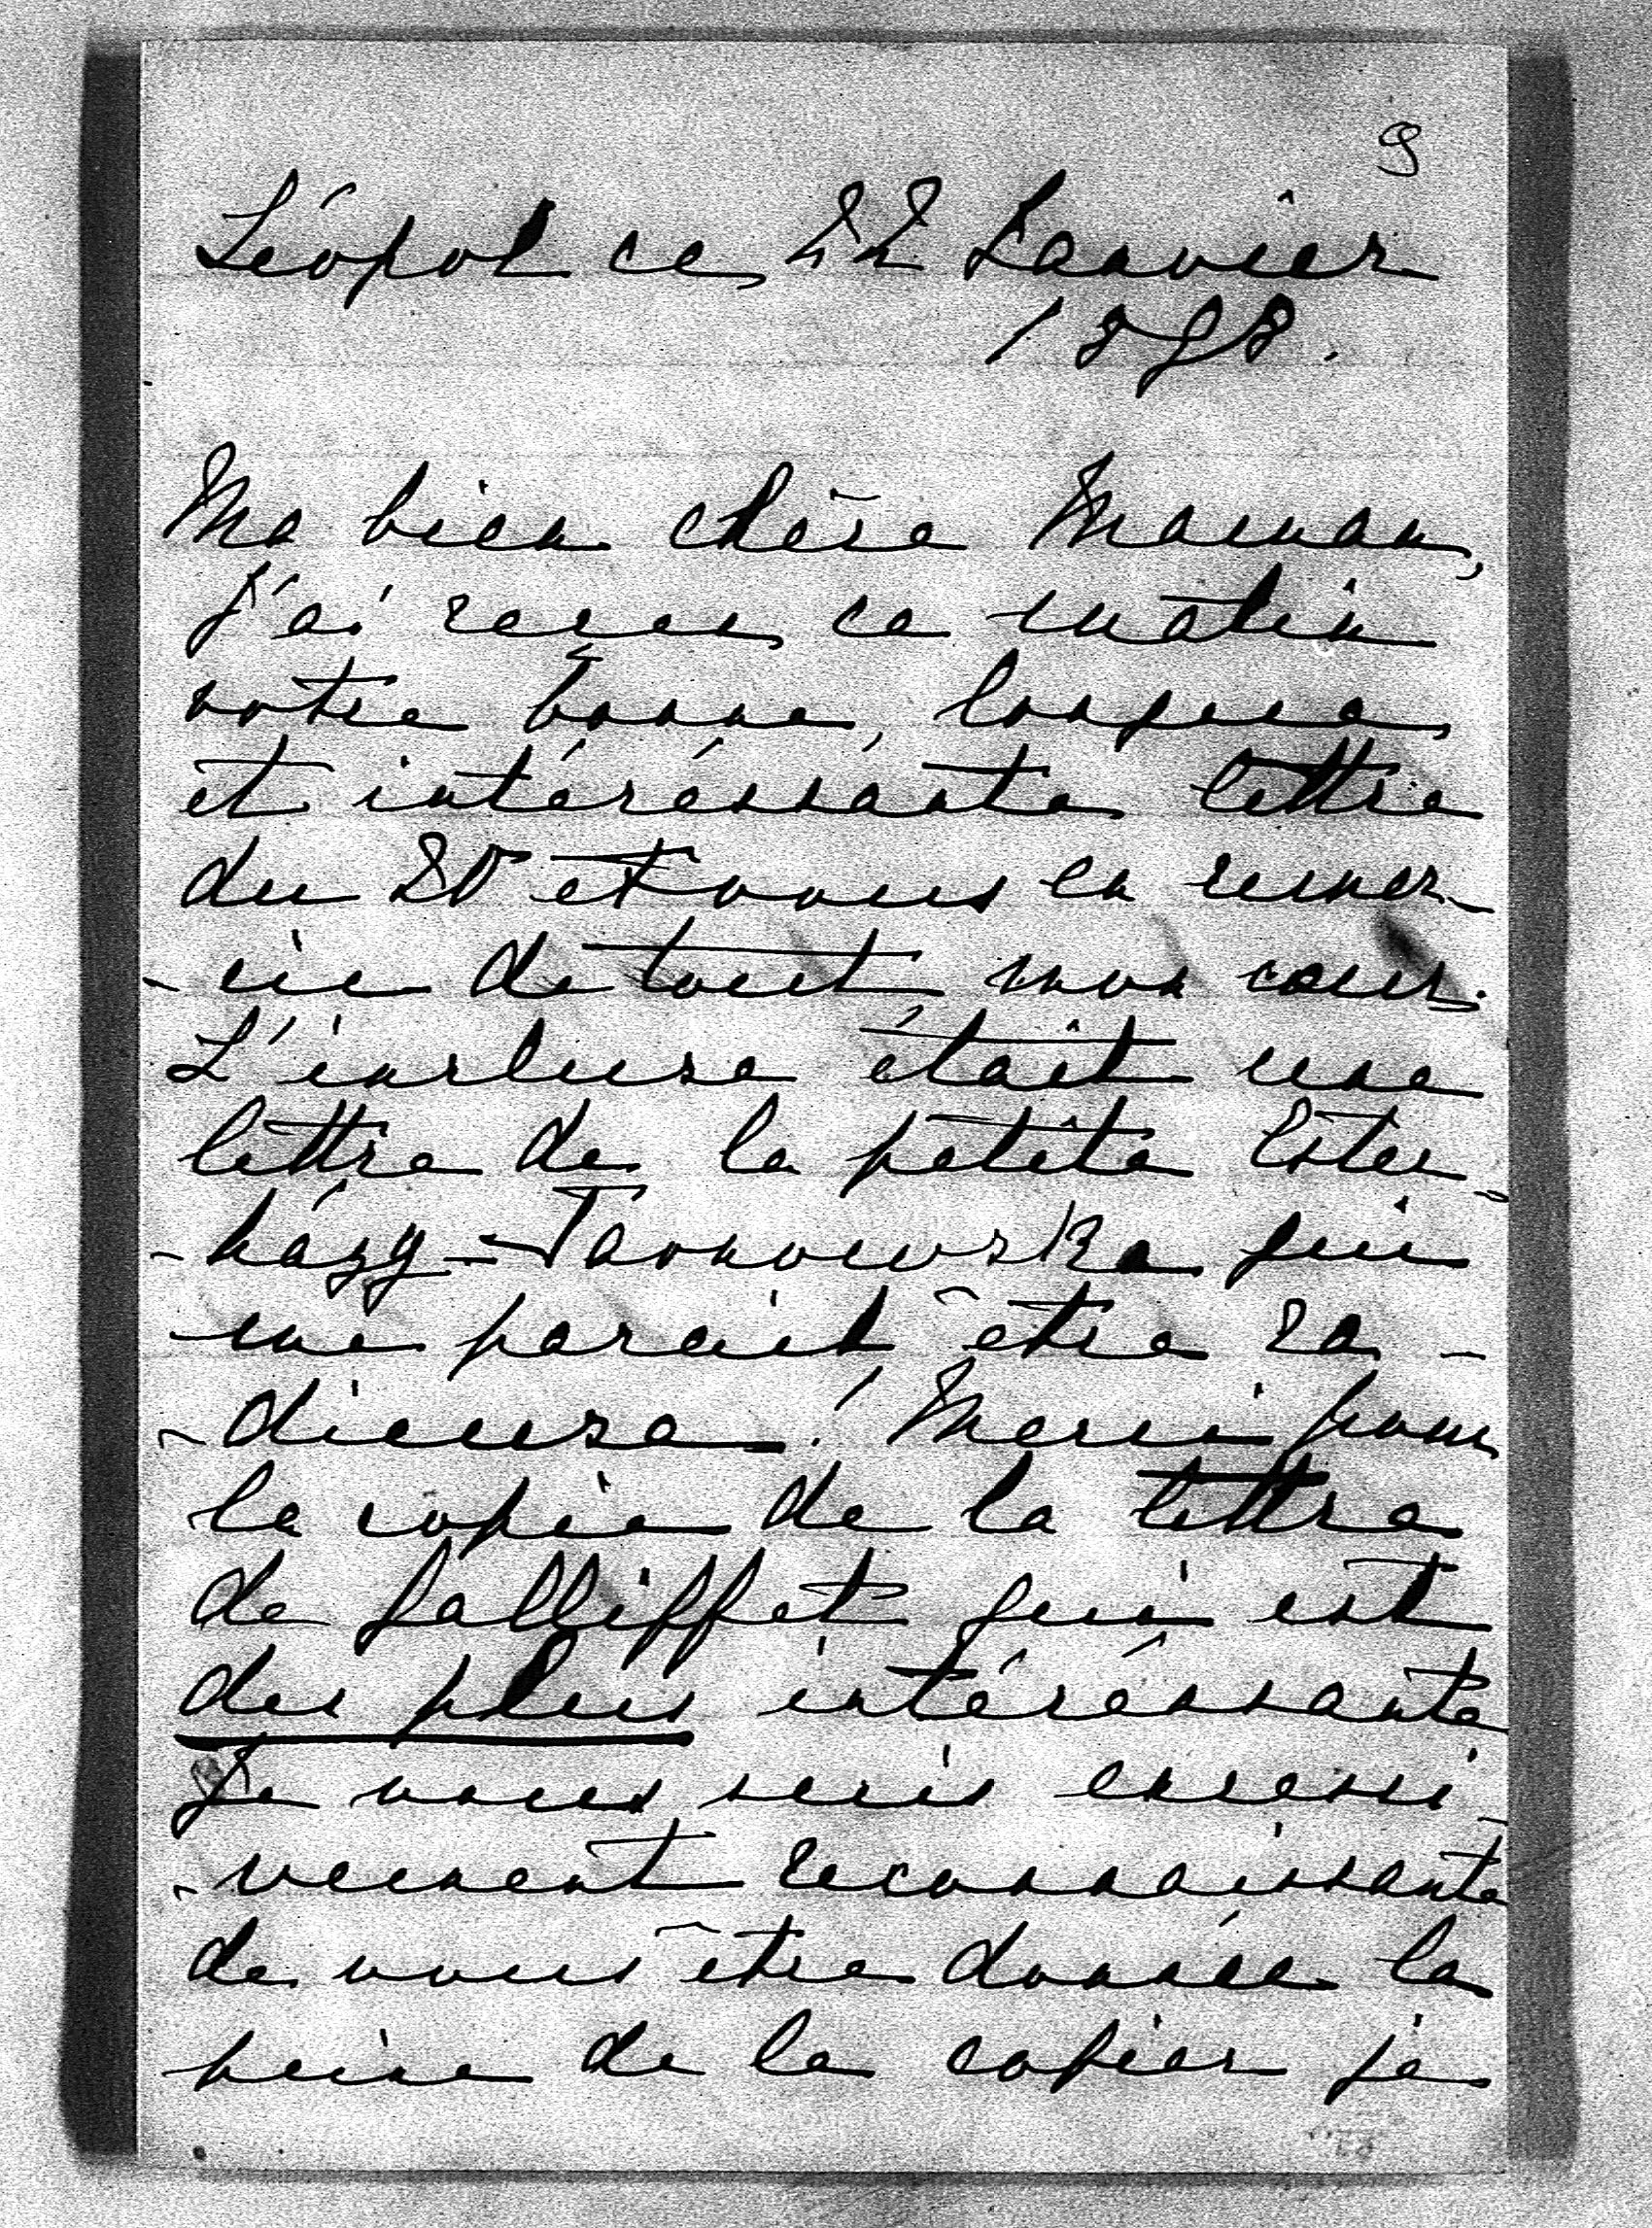 9
Léopol ce 22 Janvier
1898.
Ma bien chère Maman,
J'ai reçu ce matin
votre bonne, longue
et intéréssante lettre
du 20 et vous en remer-
-cie de tout mon cœur.
L'incluse était une
lettre de la petite Ester-
-házy-Tarnowska qui
me parait être ra-
-dieuse! Merci pour
la copie de la lettre
de Galliffet qui est
des plus intéréssante
Je vous suis excessi-
-vement reconnaissante
de vous être donnée la
peine de la copier je